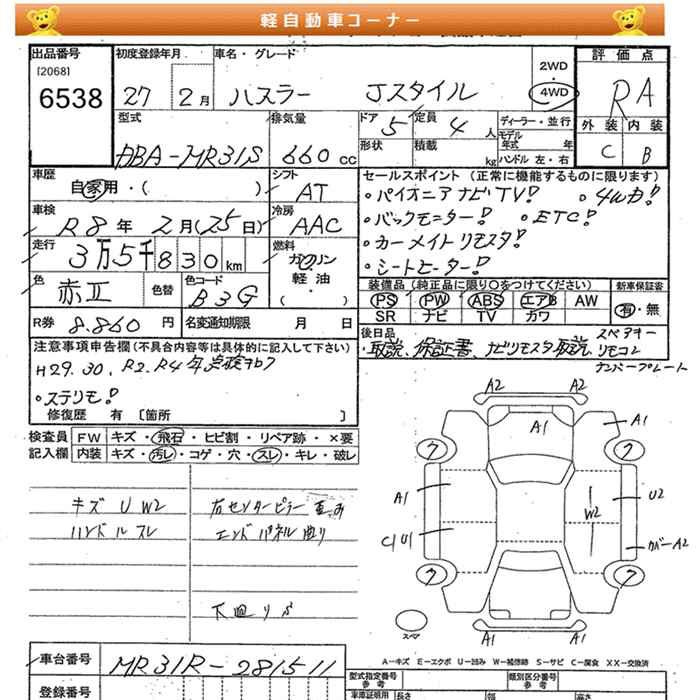 軽自動車コーナー
出品番号 初度登録年月 車名・グレード 評価点
[2068]
6538
27 2月 ハスラー Jスタイル
2WD
4WD
RA
外装 内装
C B
型式 排気量 ドア 定員 ディーラー・並行
DBA-MR31S 660 cc 5 4 人
モデル年式 年
形状 積載 kg ハンドル 左・右
車歴 自家用・( ) シフト AT
車検 R8年 2月(25日) 冷房 AAC
走行 3万5千830km 燃料 ガソリン・軽油・( )
色 赤II 色替 色コード B3G
R券 8.860円 名変通知期限 月 日
セールスポイント (正常に機能するものに限ります)
・パイオニアナビTV! ・4WD!
・バックモニター! ・ETC!
・カーメイトリモスタ!
・シートヒーター!
装備品(純正品に限り○をつけてください) 新車保証書
PS PW ABS エアB AW 有・無
SR ナビ TV カワ
後日品
・取説、保証書、ナビリモスタ取説、スペアキー
リモコン
ナンバープレート
注意事項申告欄(不具合内容等は具体的に記入して下さい)
H29.30、R2、R4年点検
・ステリモ!
修復歴 有 [箇所 ]
検査員 FW キズ・飛石・ヒビ割・リペア跡・×要
記入欄 内装 キズ・汚レ・コゲ・穴・スレ・キレ・破レ
キズ U W2 右センターピラー
ハンドルスレ エンドパネル曲り
下廻りS
A2 A2
A1 A1
ウ ウ
A1 U2
W2
C1 U1 カバーA2
ウ ウ
スマ
A1 A1
A-キズ E-エクボ U-凹み W-補修跡 S-サビ C-腐食 XX-交換済
車台番号 MR31R-281511
型式指定番号 参考 類別区分番号 参考
登録番号 車庫証明用 長さ 幅 高さ
参考